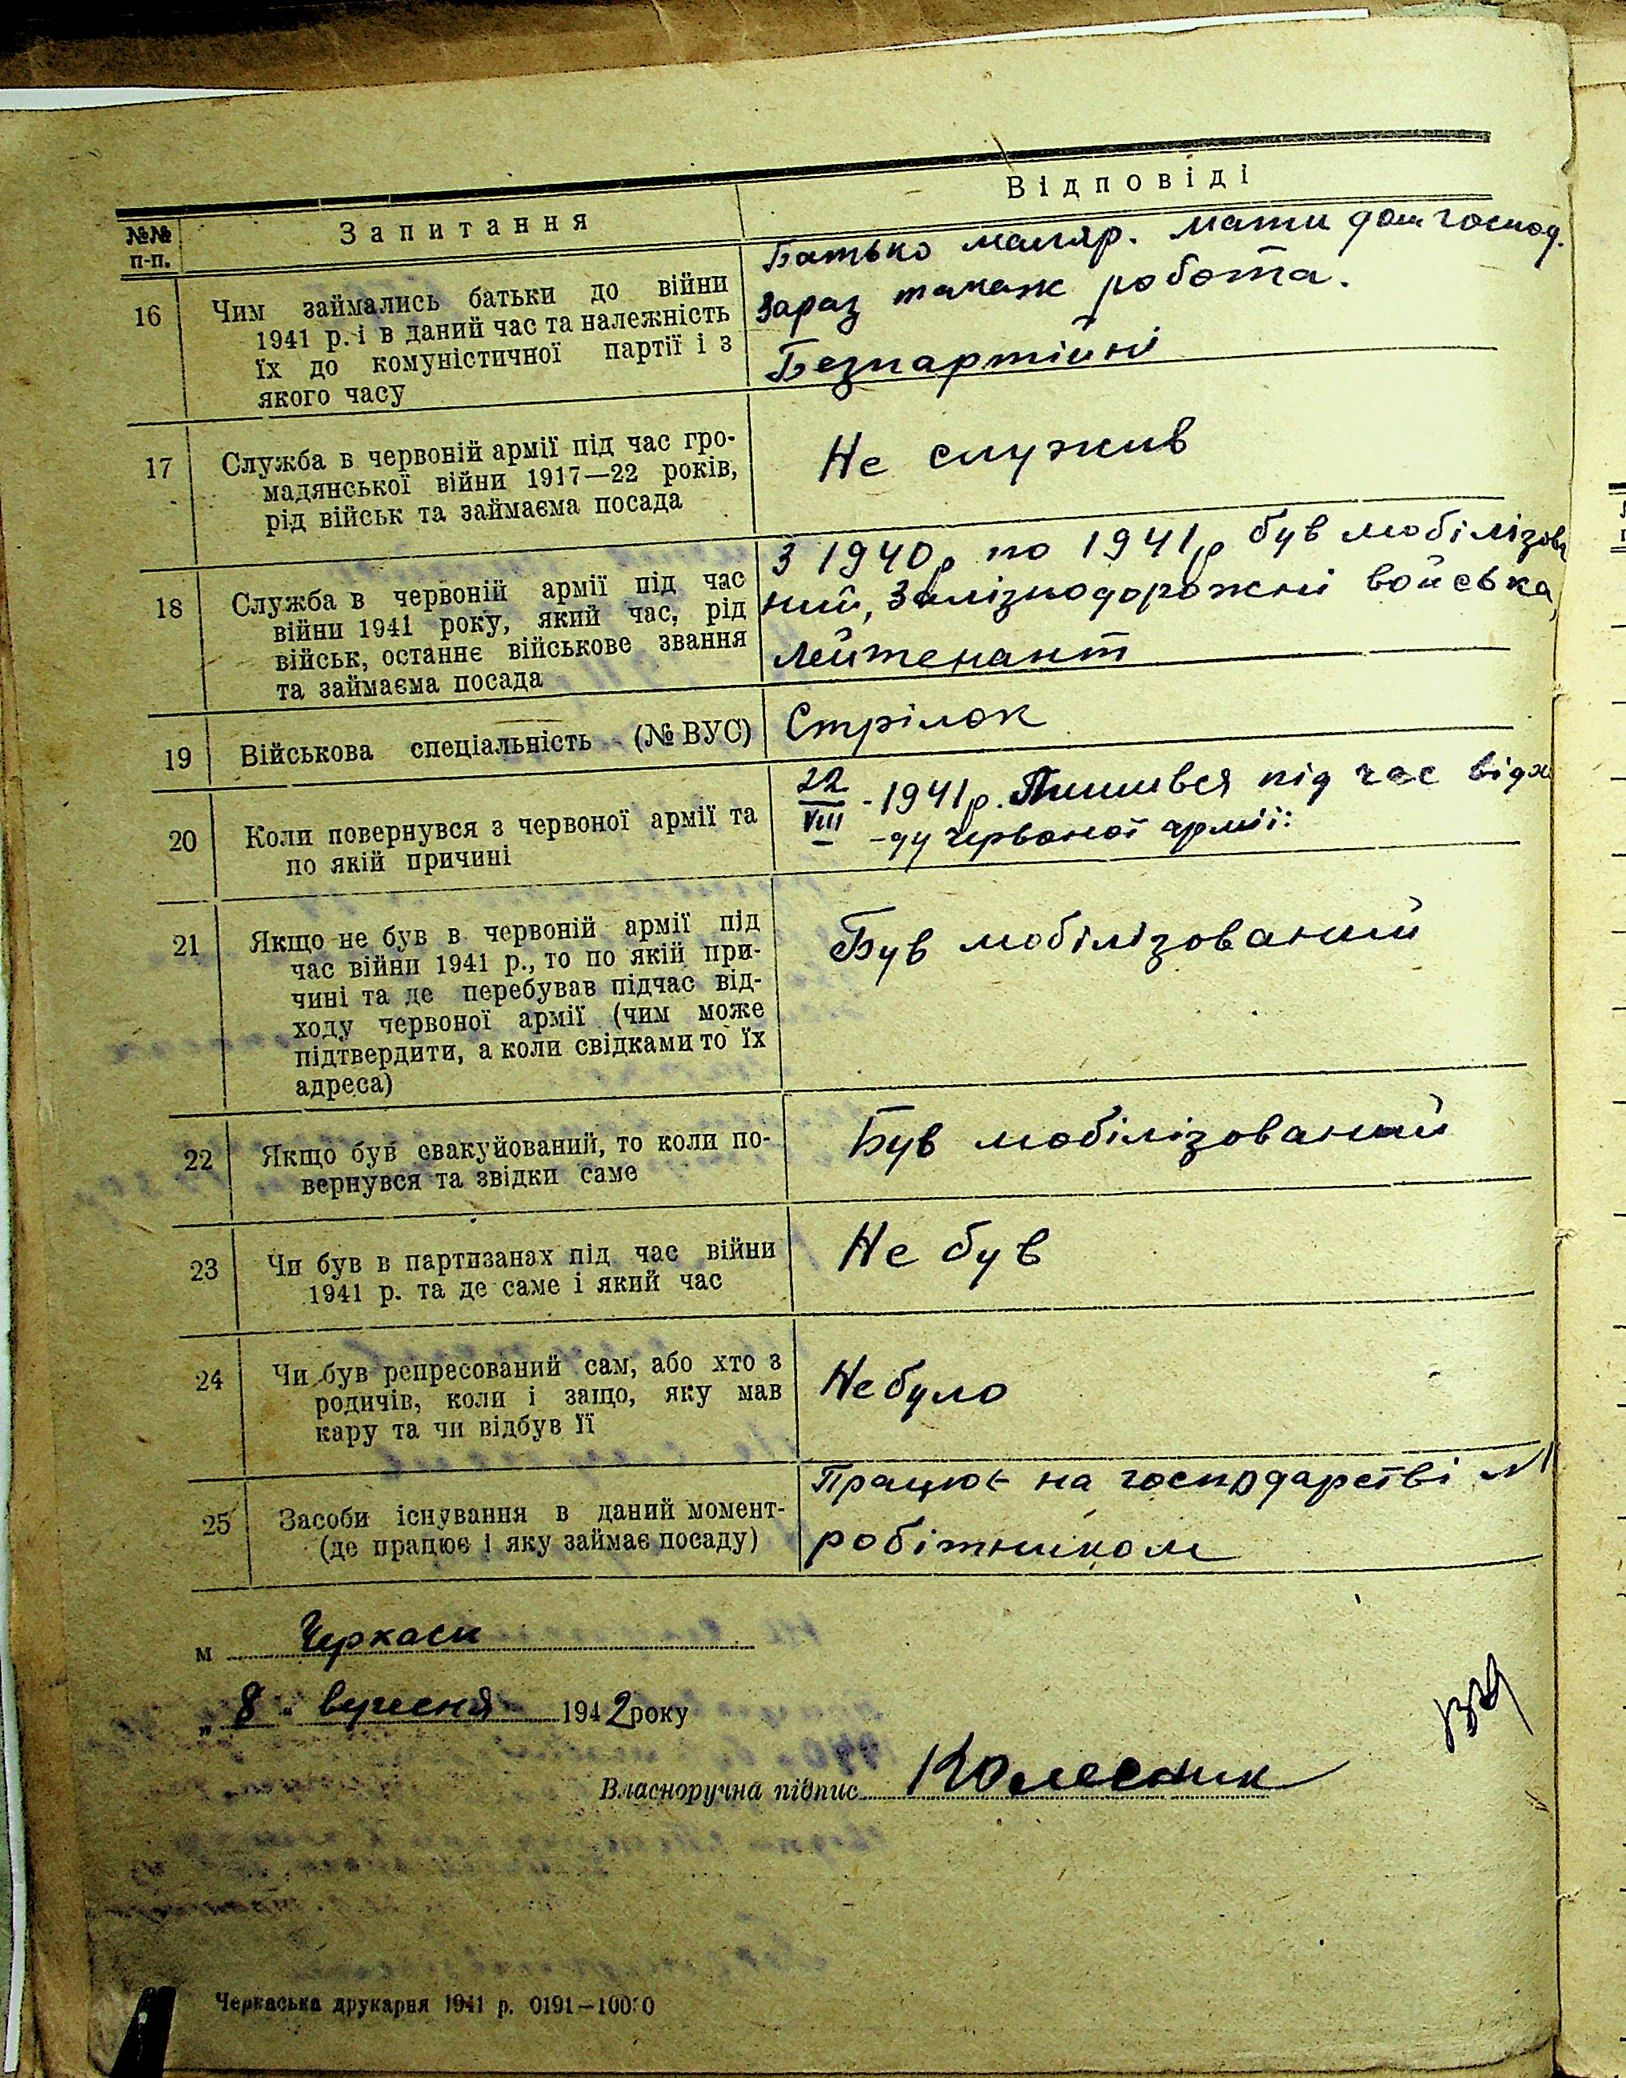 №№
п-п.
Запитання
Відповіді
16
Чим займались батьки до війни
1941 р. і в даний час та належність
їх до комуністичної партії і з
якого часу
Батько маляр. мати дом господ.
Зараз такаж робота.
Безпартійні
17
Служба в червоній армії під час гро-
мадянської війни 1917—22 років,
рід військ та займаєма посада
Не служив
18
Служба в червоній армії під час
війни 1941 року, який час, рід
військ, останнє військове звання
та займаєма посада
З 1940р по 1941р був мобілізова
ний, Залізнодорожні войська,
Лейтенант
19
Військова спеціальність (№ ВУС)
Стрілок
20
Коли повернувся з червоної армії та
по якій причині
22
VIII - 1941р. Лишився під час відхо
-ду Червоної армії:
21
Якщо не був в червоній армії під
час війни 1941 р., то по якій при-
чині та де перебував підчас від-
ходу червоної армії (чим може
підтвердити, а коли свідками то їх
адреса)
Був мобілізований
22
Якщо був евакуйований, то коли по-
вернувся та звідки саме
Був мобілізований
23
Чи був в партизанах під час війни
1941 р. та де саме і який час
Не був
24
Чи був репресований сам, або хто з
родичів, коли і защо, яку мав
кару та чи відбув її
Небуло
25
Засоби існування в даний момент-
(де працює і яку займає посаду)
Працює на господарстві №1
робітником
м Черкаси
„ 8 " вересня 1942 року
Власноручна підпис Колесник
Черкаська друкарня 1941 р. 0191—10000